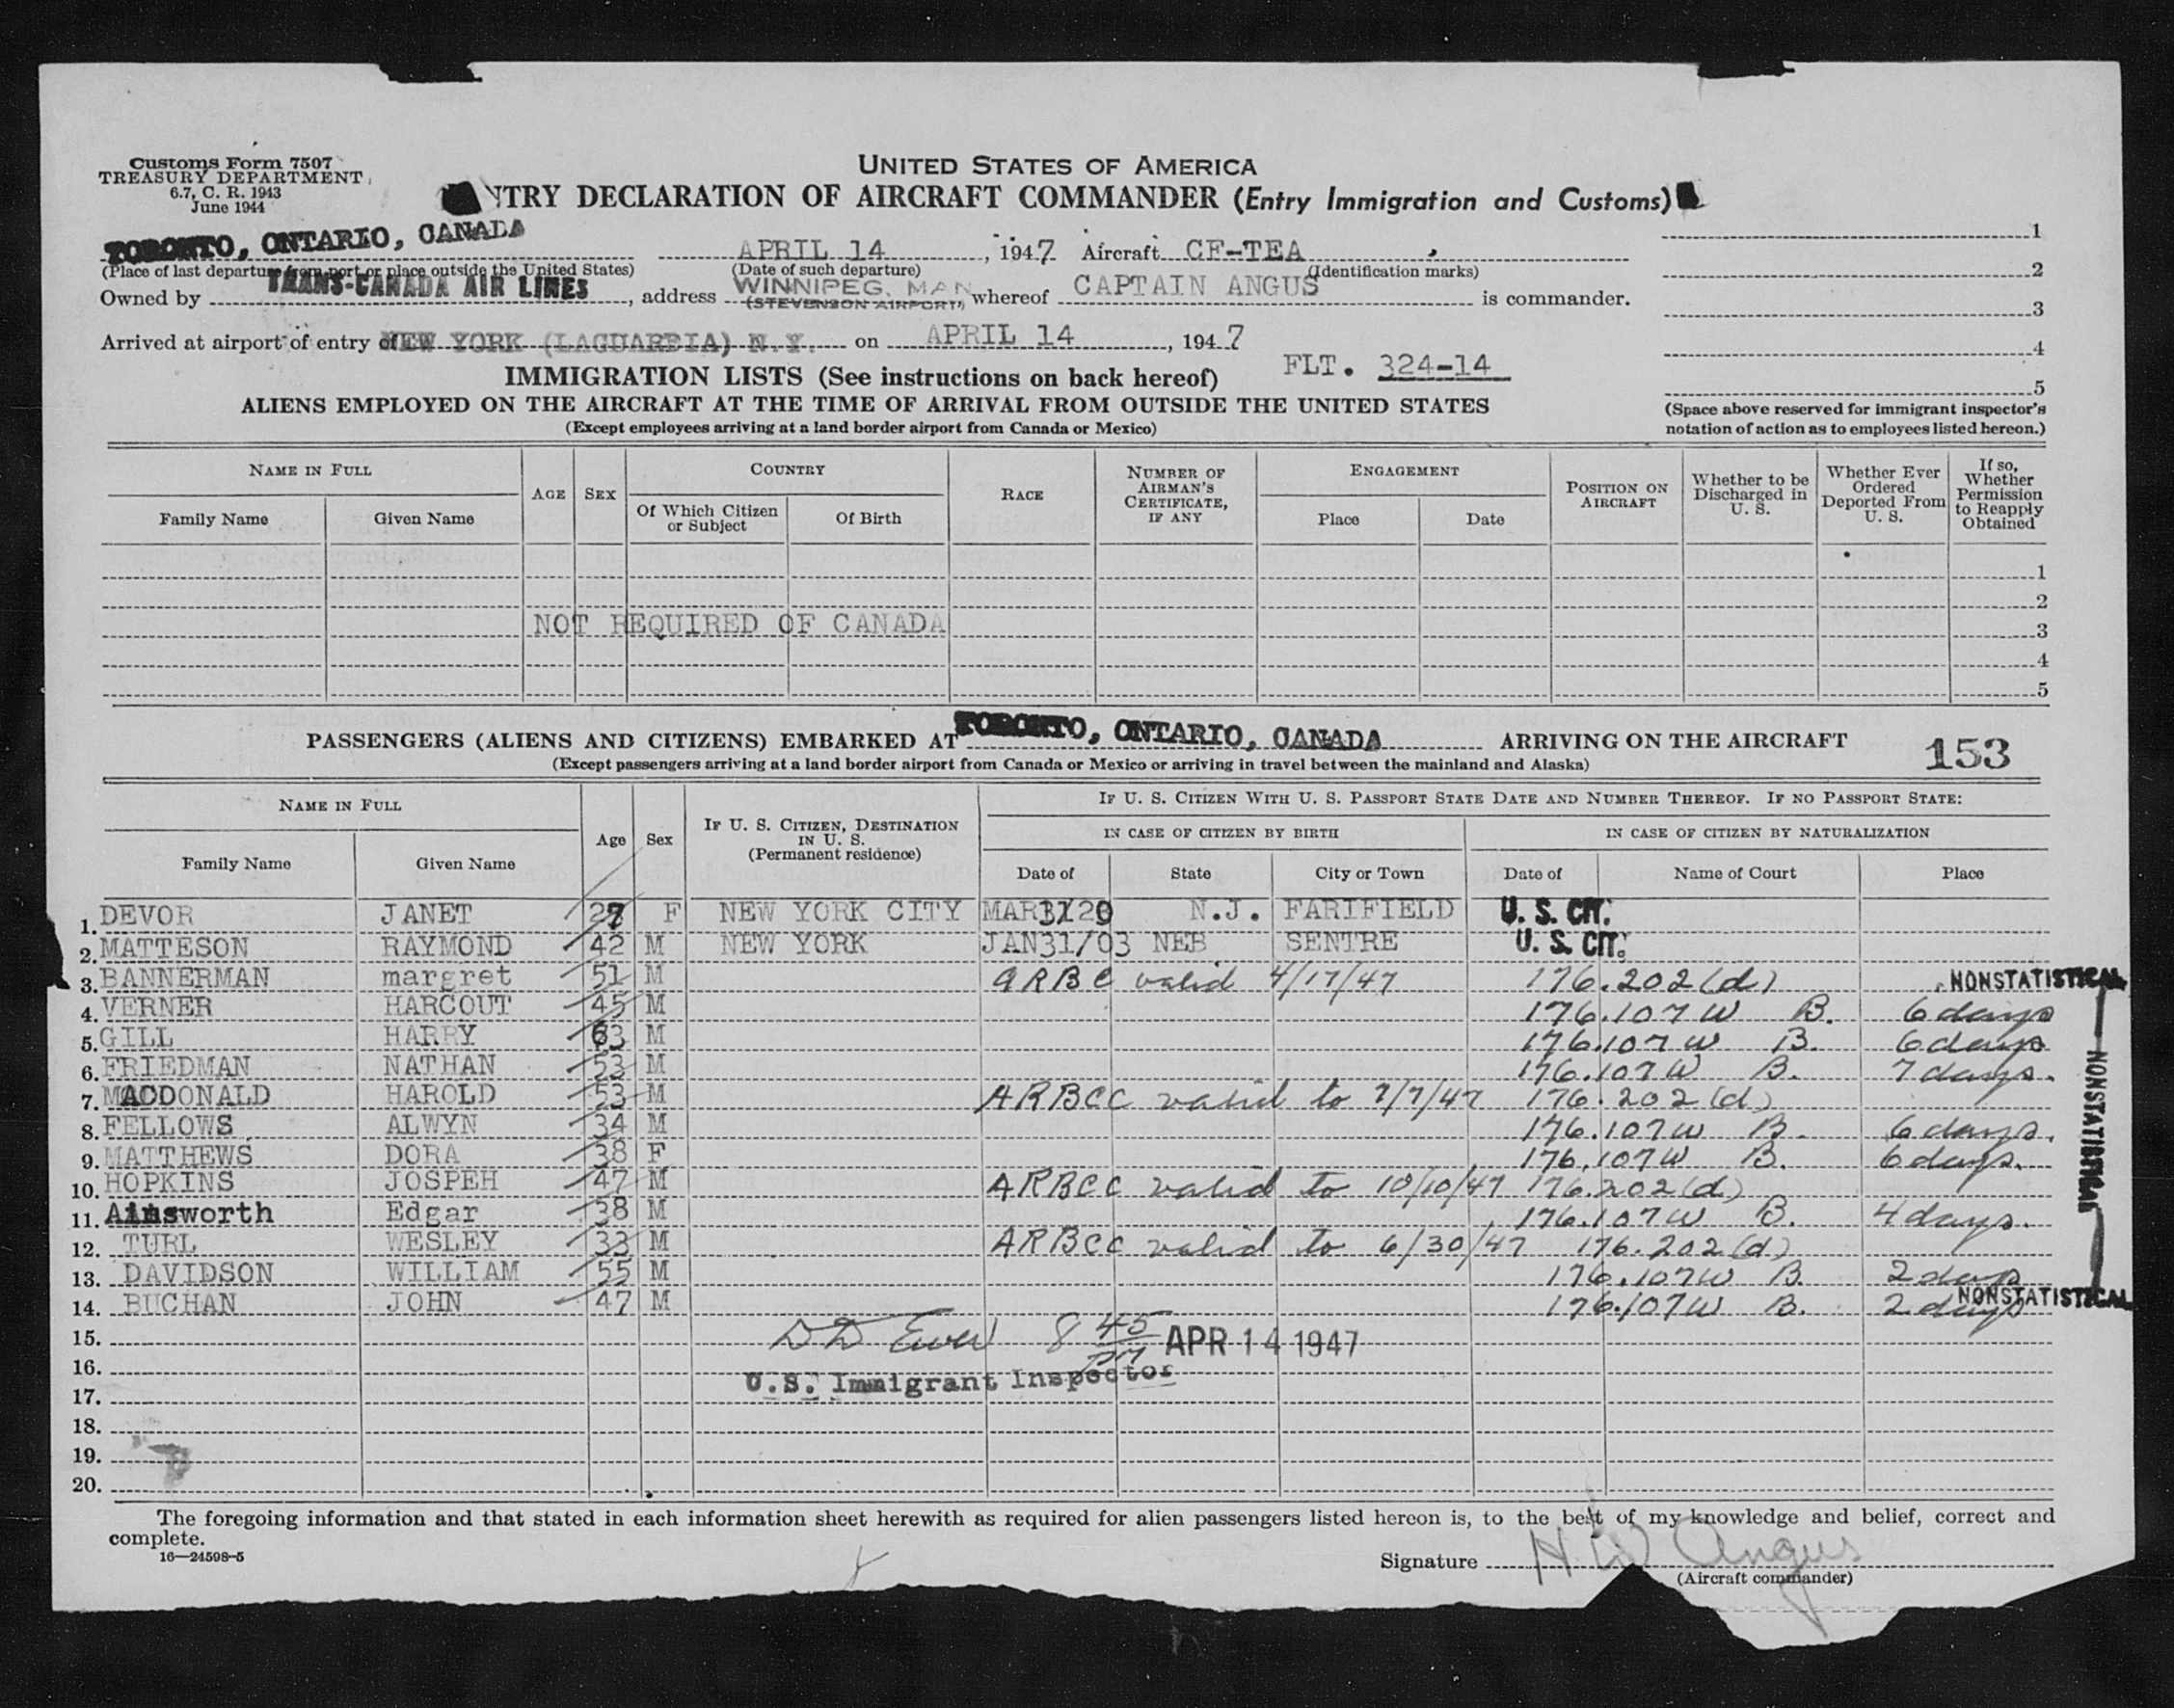 Customs Form 7507
TREASURY DEPARTMENT
6.7, C. R. 1943
June 1944
UNITED STATES OF AMERICA
NTRY DECLARATION OF AIRCRAFT COMMANDER (Entry Immigration and Customs)
TORONTO, ONTARIO, CANADA APRIL 14, 1947 Aircraft CF-TEA
(Place of last departure from port or place outside the United States) (Date of such departure) (Identification marks)
Owned by TRANS-CANADA AIR LINES, address WINNIPEG, MAN (STEVENSON AIRPORT) whereof CAPTAIN ANGUS is commander.
Arrived at airport of entry of NEW YORK (LAGUARDIA) N.Y. on APRIL 14, 1947
FLT. 324-14
1
2
3
4
5
(Space above reserved for immigrant inspector's notation of action as to employees listed hereon.)
IMMIGRATION LISTS (See instructions on back hereof)
ALIENS EMPLOYED ON THE AIRCRAFT AT THE TIME OF ARRIVAL FROM OUTSIDE THE UNITED STATES
(Except employees arriving at a land border airport from Canada or Mexico)
NAME IN FULL
Family Name Given Name
AGE SEX
COUNTRY
Of Which Citizen or Subject Of Birth
RACE
NUMBER OF AIRMAN'S CERTIFICATE, IF ANY
ENGAGEMENT
Place Date
POSITION ON AIRCRAFT
Whether to be Discharged in U. S.
Whether Ever Ordered Deported From U. S.
If so, Whether Permission to Reapply Obtained
1
2
NOT REQUIRED OF CANADA 3
4
5
PASSENGERS (ALIENS AND CITIZENS) EMBARKED AT TORONTO, ONTARIO, CANADA ARRIVING ON THE AIRCRAFT 153
(Except passengers arriving at a land border airport from Canada or Mexico or arriving in travel between the mainland and Alaska)
NAME IN FULL
Family Name Given Name
Age Sex
IF U. S. CITIZEN, DESTINATION IN U. S. (Permanent residence)
IF U. S. CITIZEN WITH U. S. PASSPORT STATE DATE AND NUMBER THEREOF. IF NO PASSPORT STATE:
IN CASE OF CITIZEN BY BIRTH IN CASE OF CITIZEN BY NATURALIZATION
Date of State City or Town Date of Name of Court Place
1. DEVOR JANET 27 F NEW YORK CITY N.J. FARIFIELD U. S. CIT.
2. MATTESON RAYMOND 42 M NEW YORK JAN31/03 NEB SENTRE U. S. CIT.
3. BANNERMAN margret 51 M ARBC valid 4/17/47 176.202(d) NONSTATISTICAL
4. VERNER HARCOUT 45 M 176.107W B. 6 days
5. GILL HARRY 63 M 176.107W B. 6 days
6. FRIEDMAN NATHAN 53 M 176.107W B. 7 days.
7. MACDONALD HAROLD 53 M ARBCC valid to 7/7/47 176.202(d)
8. FELLOWS ALWYN 34 M 176.107W B. 6 days.
9. MATTHEWS DORA 38 F 176.107W B. 6 days.
10. HOPKINS JOSPEH 47 M ARBCC valid to 10/10/47 176.202(d)
11. Ainsworth Edgar 38 M 176.107W B. 4 days.
12. TURL WESLEY 33 M ARBCC valid to 6/30/47 176.202(d)
13. DAVIDSON WILLIAM 55 M 176.107W B 2 days
14. BUCHAN JOHN 47 M 176.107W B. 2 days NONSTATISTICAL
NONSTATISTICAL
15. 8 45 PM APR 14 1947
16.
U.S. Immigrant Inspector
17.
18.
19.
20.
The foregoing information and that stated in each information sheet herewith as required for alien passengers listed hereon is, to the best of my knowledge and belief, correct and
complete.
16—24598-5
Signature H W Angus
(Aircraft commander)